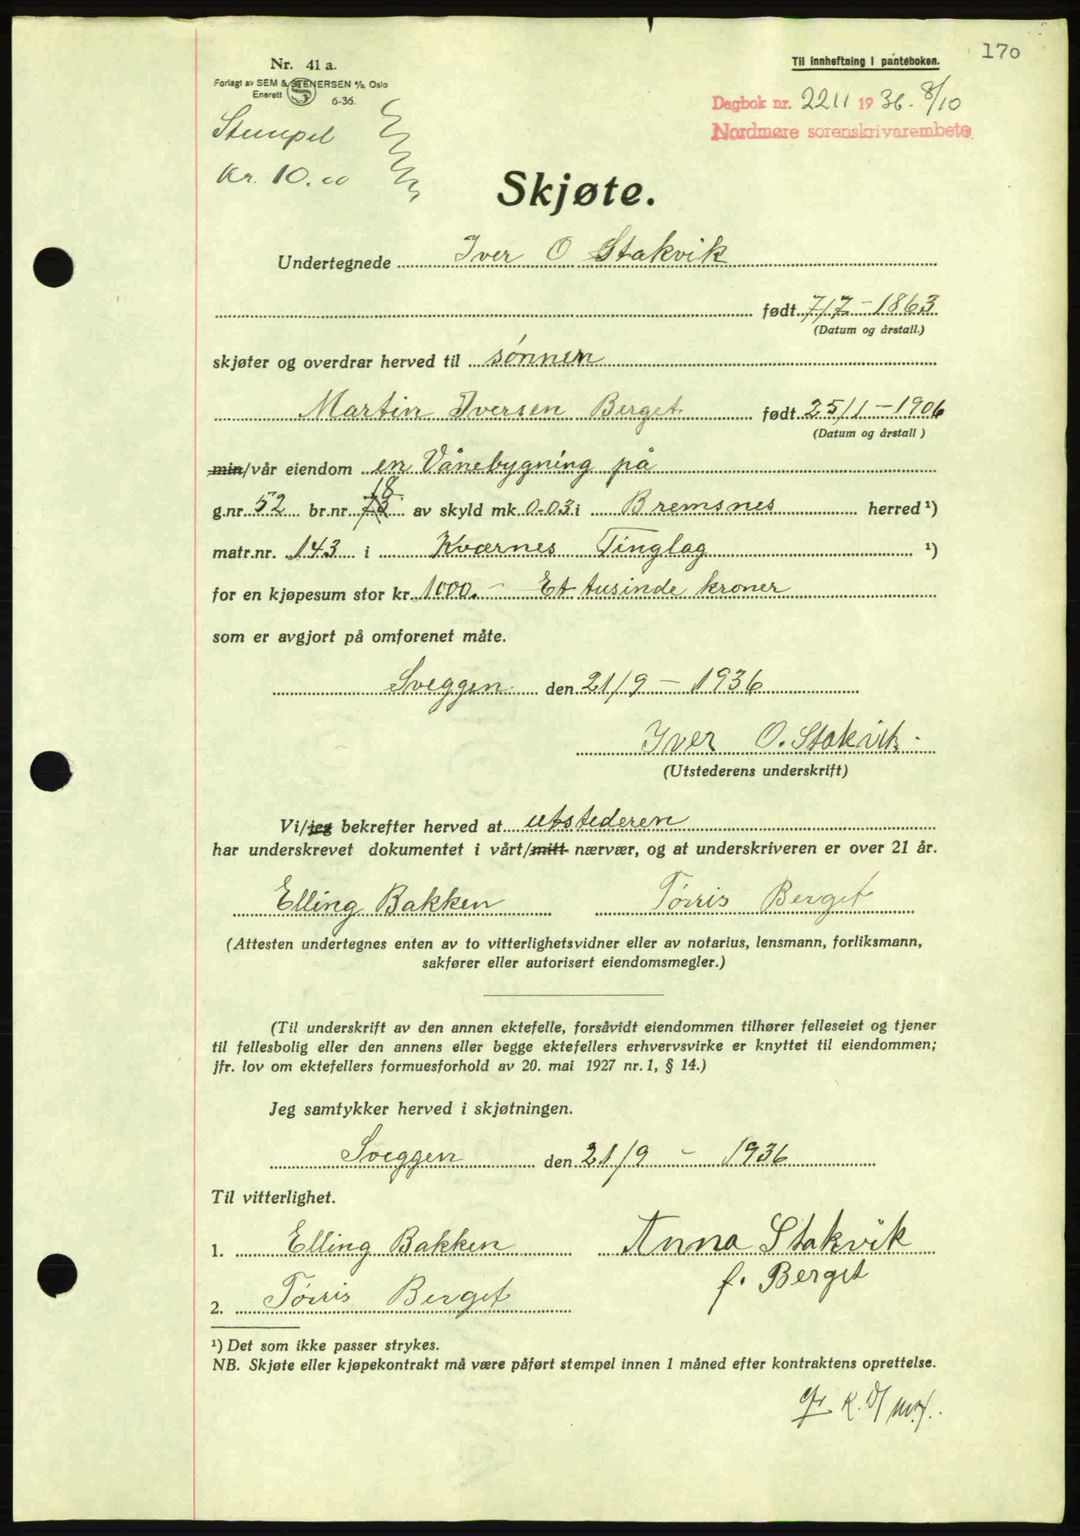 170
Nr. 41 a.
Forlagt av SEM & STENERSEN A/S, Oslo
Enerett 6-36.
Til innheftning i panteboken.
Stempel
Kr. 10.00
Dagbok nr. 2211 1936. 8/10
Nordmøre sorenskriverembete
Skjøte.
Undertegnede Iver O Stakvik
født 7/7 - 1863
(Datum og årstall.)
skjøter og overdrar herved til sønnen
Martin Iversen Berget født 25/1 - 1906
(Datum og årstall)
min/vår eiendom en Vånebygning på
g.nr. 52 br.nr. 18 av skyld mk. 0.03 i Bremsnes herred ¹)
matr.nr. 143 i Kværnes Tinglag ¹)
for en kjøpesum stor kr. 1000.- Et tusinde kroner
som er avgjort på omforenet måte.
Sveggen den 21/9 - 1936
Iver O. Stakvik
(Utstederens underskrift)
Vi/jeg bekrefter herved at utstederen
har underskrevet dokumentet i vårt/mitt nærvær, og at underskriveren er over 21 år.
Elling Bakken Tørris Berget
(Attesten undertegnes enten av to vitterlighetsvidner eller av notarius, lensmann, forliksmann,
sakfører eller autorisert eiendomsmegler.)
(Til underskrift av den annen ektefelle, forsåvidt eiendommen tilhører felleseiet og tjener
til fellesbolig eller den annens eller begge ektefellers erhvervsvirke er knyttet til eiendommen;
jfr. lov om ektefellers formuesforhold av 20. mai 1927 nr. 1, § 14.)
Jeg samtykker herved i skjøtningen.
Sveggen den 21/9 - 1936
Til vitterlighet.
1. Elling Bakken Anna Stakvik
f. Berget
2. Tørris Berget
¹) Det som ikke passer strykes.
NB. Skjøte eller kjøpekontrakt må være påført stempel innen 1 måned efter kontraktens oprettelse.